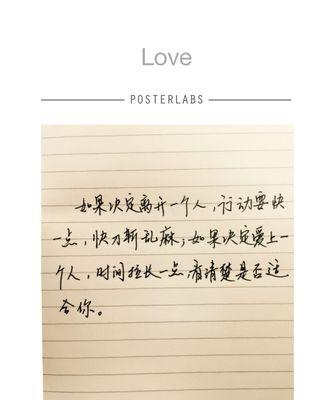 Love
POSTERLABS
如果决定离开一个人，行动要快
一点，快刀斩乱麻；如果决定爱上一
个人，时间拉长一点，看清楚是否适
合你。